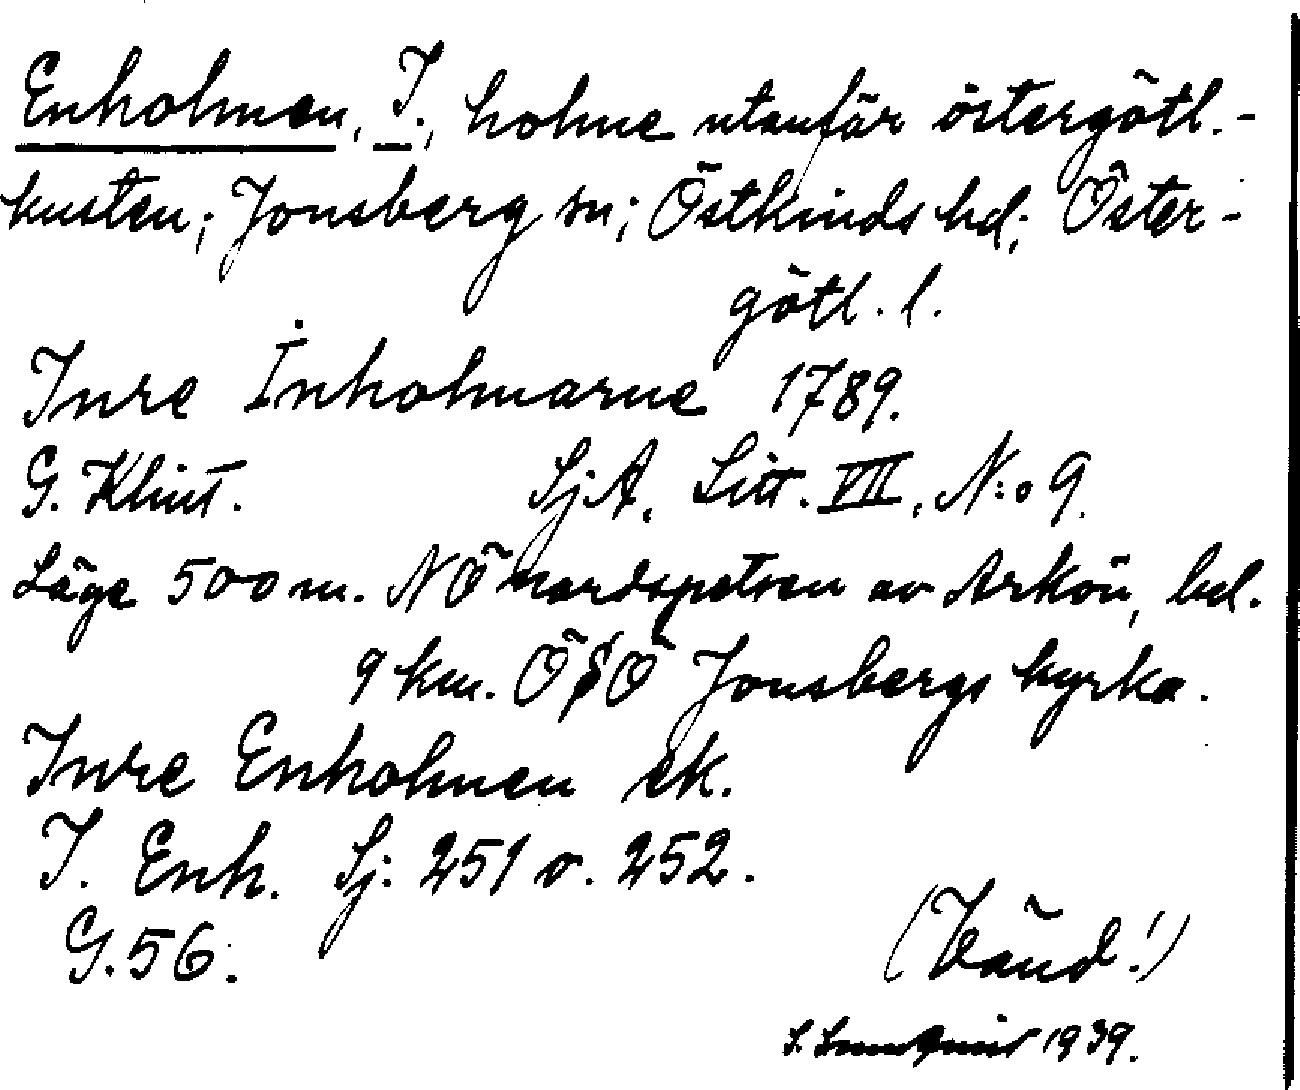 Enholmen, I., holme utanför östergötl.-
kusten; Jonsberg sn; Östkinds hd; Öster-
götl. l.
Inre Inholmarne 1789.
G. Klint. SjA, Litt. VII, N:o 9.
Läge 500 m. NÖ nordspetsen av Arkön, bel.
9 km. ÖSÖ Jonsbergs kyrka.
Inre Enholmen ek.
I. Enh. Sj. 251 o. 252.
G. 56.
(Vänd!)
S. 1939.